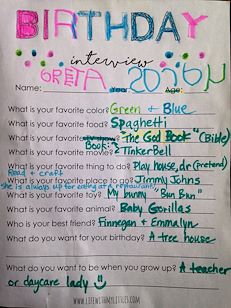 BIRTHDAY
interview
GRETA 2014
Name: Age:
What is your favorite color? Green + Blue
What is your favorite food? Spaghetti
What is your favorite The God Book" (Bible)
Book:
What is your favorite movie? TinkerBell
What is your favorite thing to do? Play house, dr (pretend)
Read + craft
What is your favorite place to go? Jimmy Johns
She is always up for eating at a restaurant!
What is your favorite toy? My bunny "Bun Bun"
What is your favorite animal? Baby Gorillas
Who is your best friend? Finnegan + Emmalyn
What do you want for your birthday? A tree house
What do you want to be when you grow up? A teacher
or daycare lady